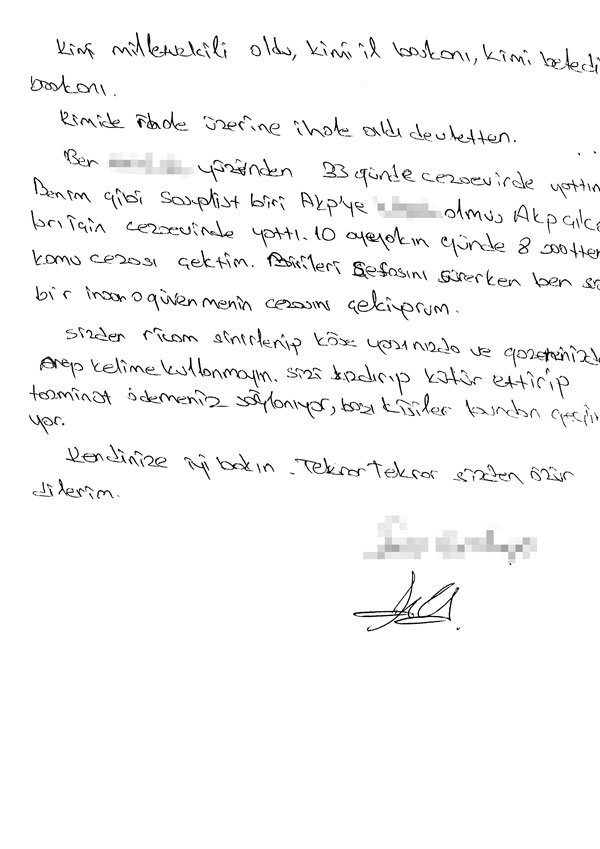 Kimi milletvekili oldu, kimi il başkanı, kimi beledi
başkanı.
Kimide ihale üzerine ihale aldı devletten.
Ben yüzünden 33 günde cezaevinde yattım
Benim gibi sosyalist biri Akp'ye olmuş Akp çılca
bri için cezaevinde yattı. 10 aya yakın günde 8 saatten
kamu cezası çektim. Birileri sefasını sürerken ben
bir insana güvenmenin cezasını çekiyorum.
Sizden ricam sinirlenip köşe yazınızda ve gazetenizde
Arap kelime kullanmayın. sizi kızdırıp küfür ettirip
tazminat ödemeniz sağlanıyor, bazı kişiler bundan geçin
yor.
Kendinize iyi bakın. Tekrar Tekrar sizden özür
dilerim.